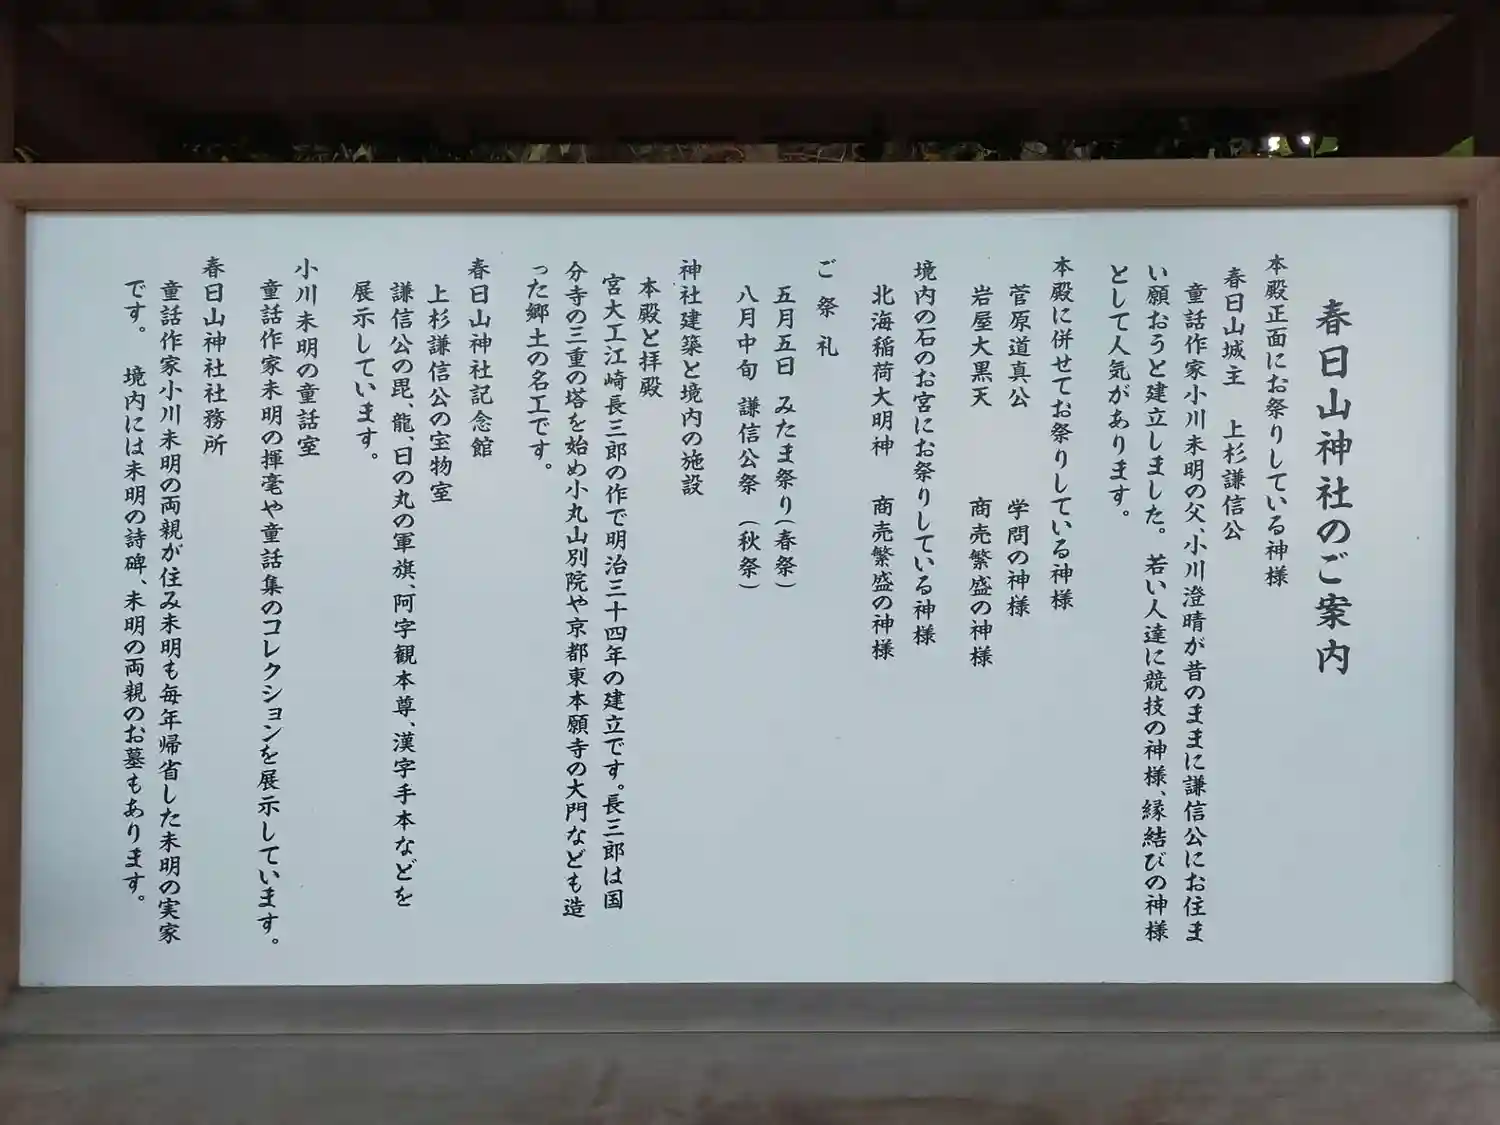 春日山神社のご案内
本殿正面にお祭りしている神様
春日山城主 上杉謙信公
童話作家小川未明の父、小川澄晴が昔のままに謙信公にお住ま
い願おうと建立しました。若い人達に競技の神様、縁結びの神様
として人気があります。
本殿に併せてお祭りしている神様
菅原道真公 学問の神様
岩屋大黒天 商売繁盛の神様
境内の石のお宮にお祭りしている神様
北海稲荷大明神 商売繁盛の神様
ご祭礼
五月五日 みたま祭り(春祭)
八月中旬 謙信公祭 (秋祭)
神社建築と境内の施設
本殿と拝殿
宮大工江崎長三郎の作で明治三十四年の建立です。長三郎は国
分寺の三重の塔を始め小丸山別院や京都東本願寺の大門なども造
った郷土の名工です。
春日山神社記念館
上杉謙信公の宝物室
謙信公の毘、龍、日の丸の軍旗、阿字観本尊、漢字手本などを
展示しています。
小川未明の童話室
童話作家未明の揮毫や童話集のコレクションを展示しています。
春日山神社社務所
童話作家小川未明の両親が住み未明も毎年帰省した未明の実家
です。 境内には未明の詩碑、未明の両親のお墓もあります。